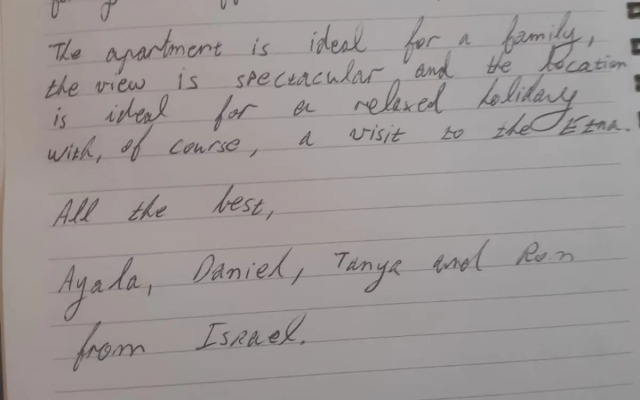 The apartment is ideal for a family,
the view is spectacular and the location
is ideal for a relaxed holiday
with, of course, a visit to the Etna.
All the best,
Ayala, Daniel, Tanya and Ron
from Israel.